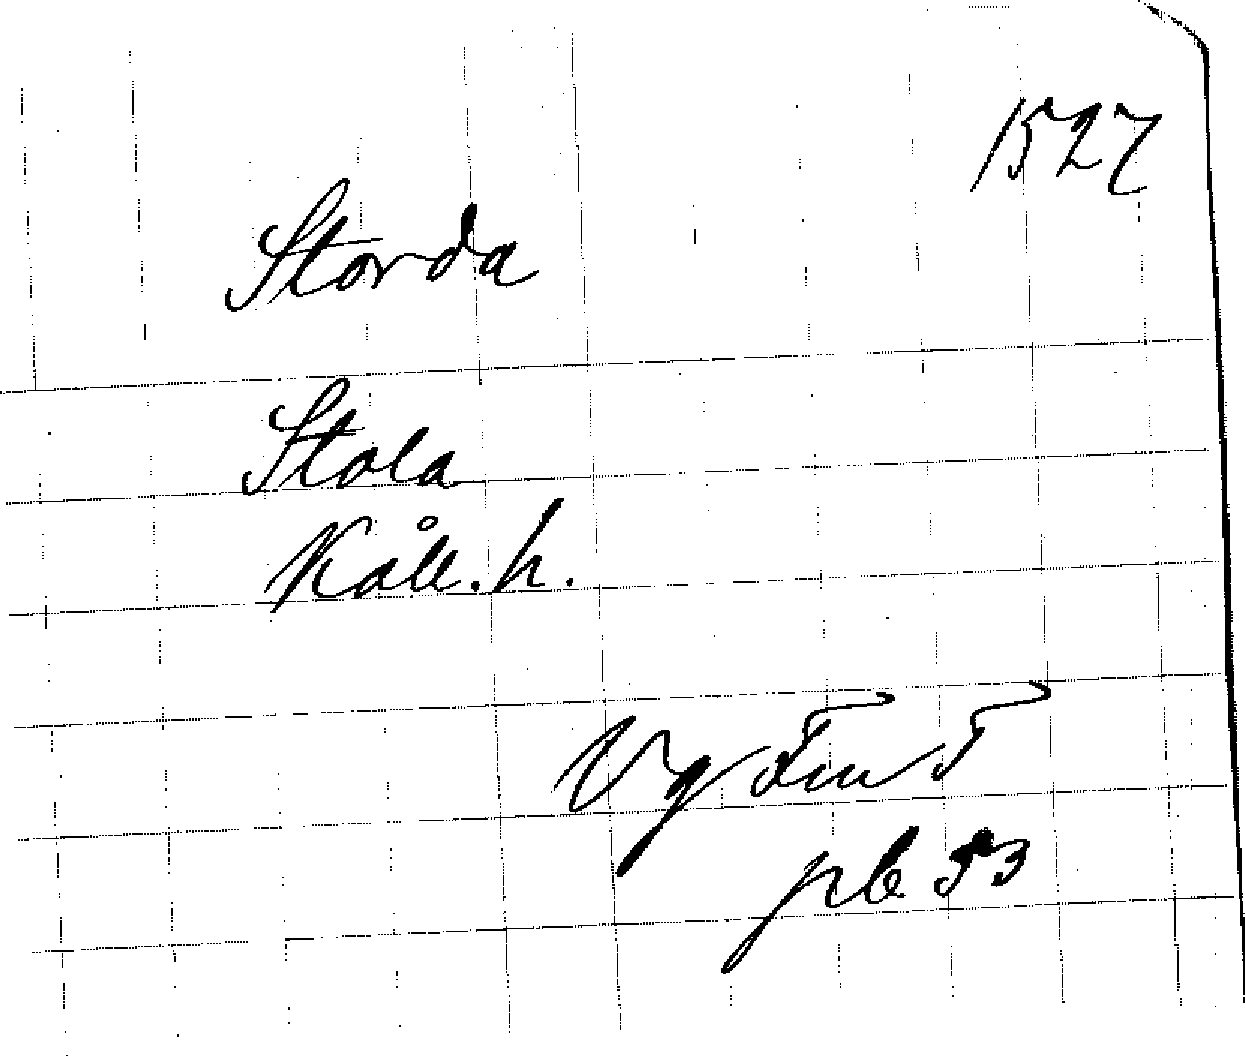 1527
Storda
Stola
Kåll. h.
Vg Fmt 5
pb 53